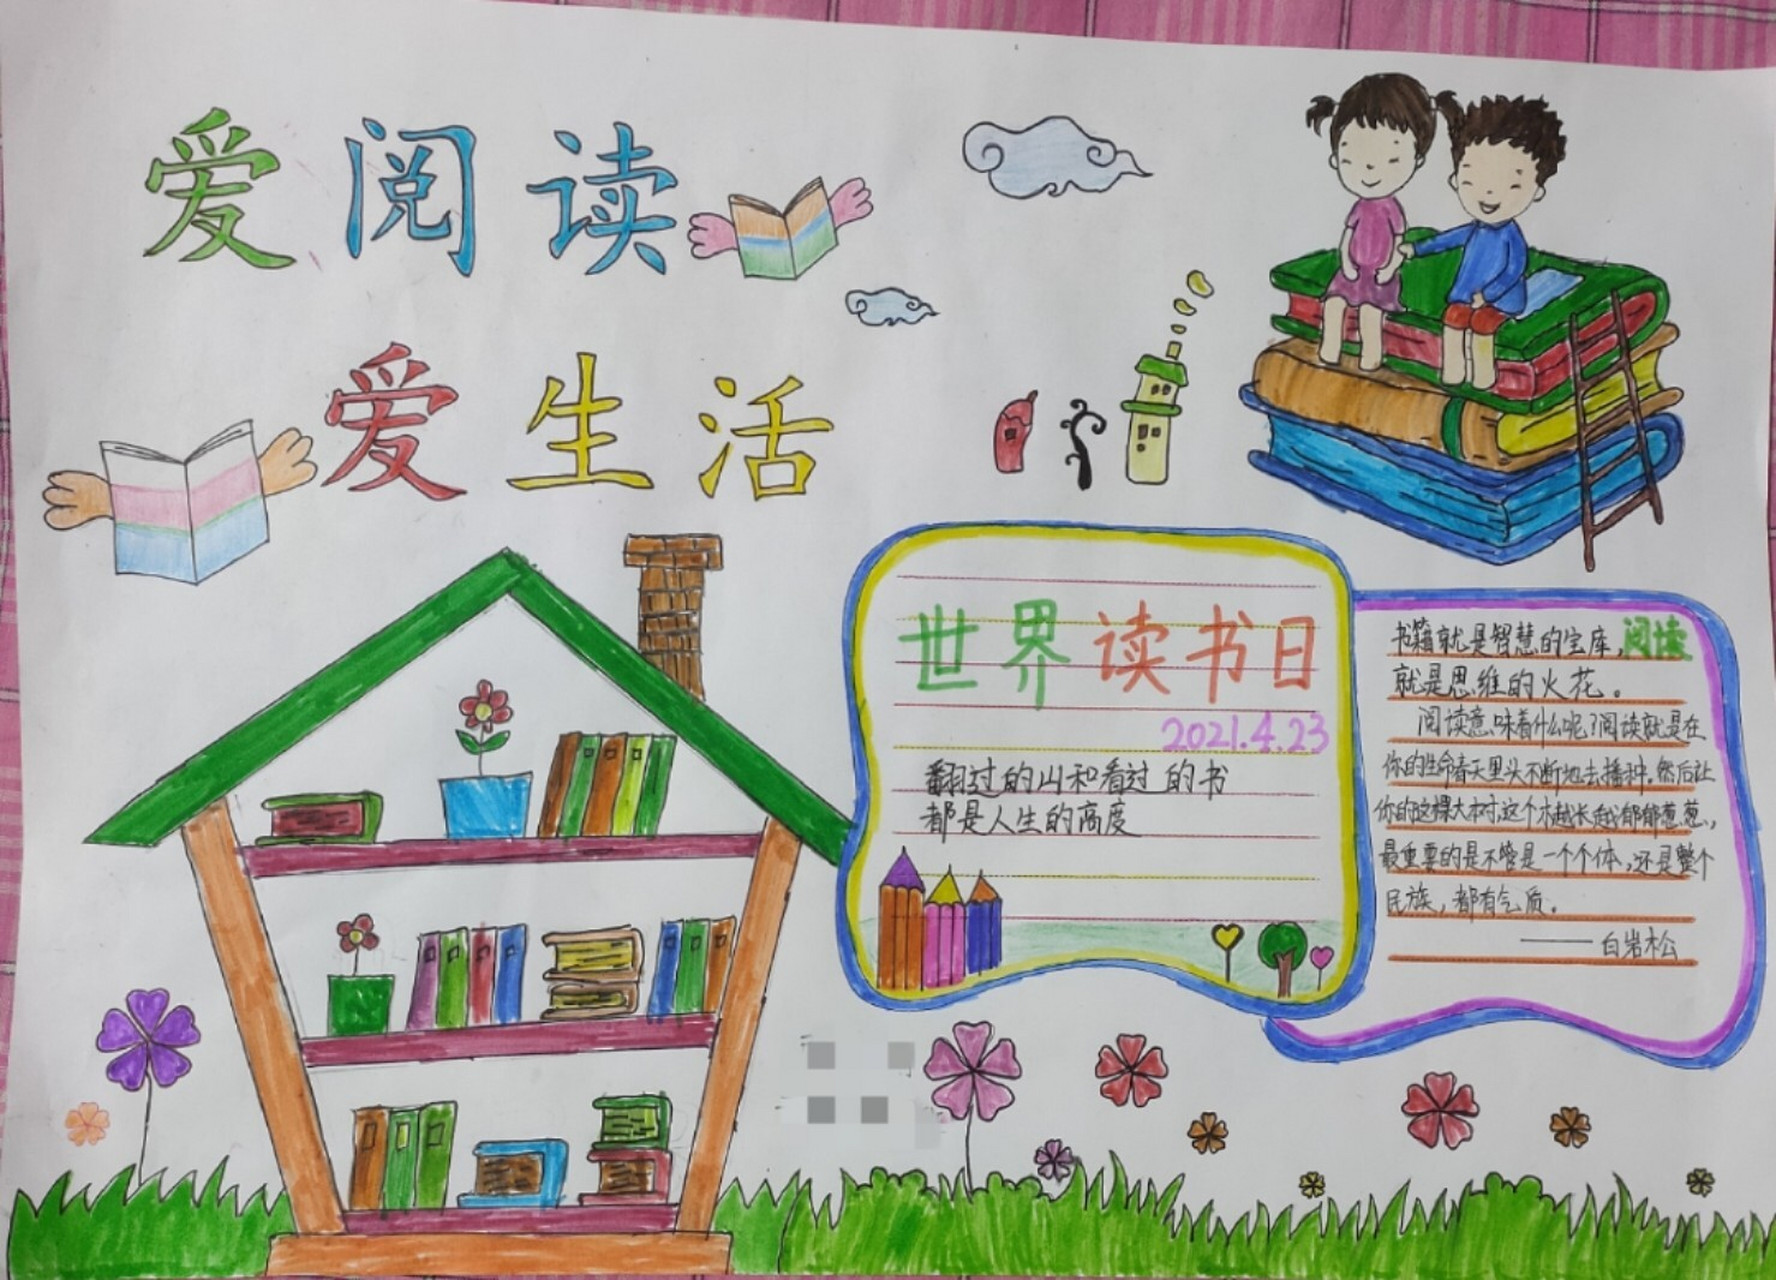 爱阅读
爱生活
世界读书日
2021.4.23
翻过的山和看过的书
都是人生的高度
书籍就是智慧的宝库,阅读
就是思维的火花。
阅读意味着什么呢?阅读就是在
你的生命春天里头不断地去播种,然后让
你的这棵大树,这个木越长越郁郁葱葱,
最重要的是不管是一个个体,还是整个
民族,都有气质。
——白岩松